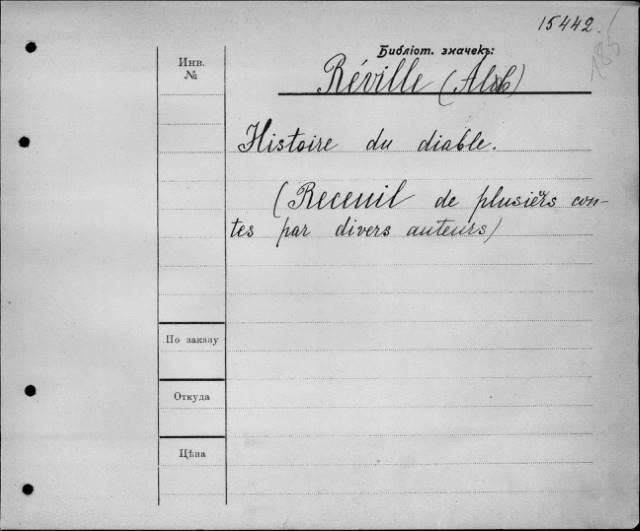 15442.
185
Библіот. значекъ:
Инв.
№
Réville (Alb)
Histoire du diable.
(Receuil de plusiers con-
tes par divers auteurs)
По заказу
Откуда
Цѣна